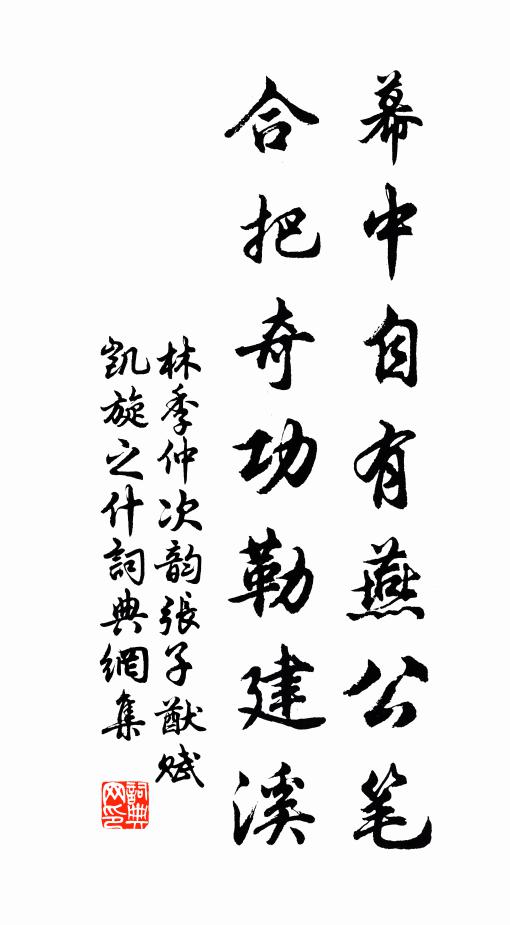 幕中自有燕公笔
合把奇功勒建溪
林季仲次韵張子猷赋
凯旋之什詞典網集
詞典网印